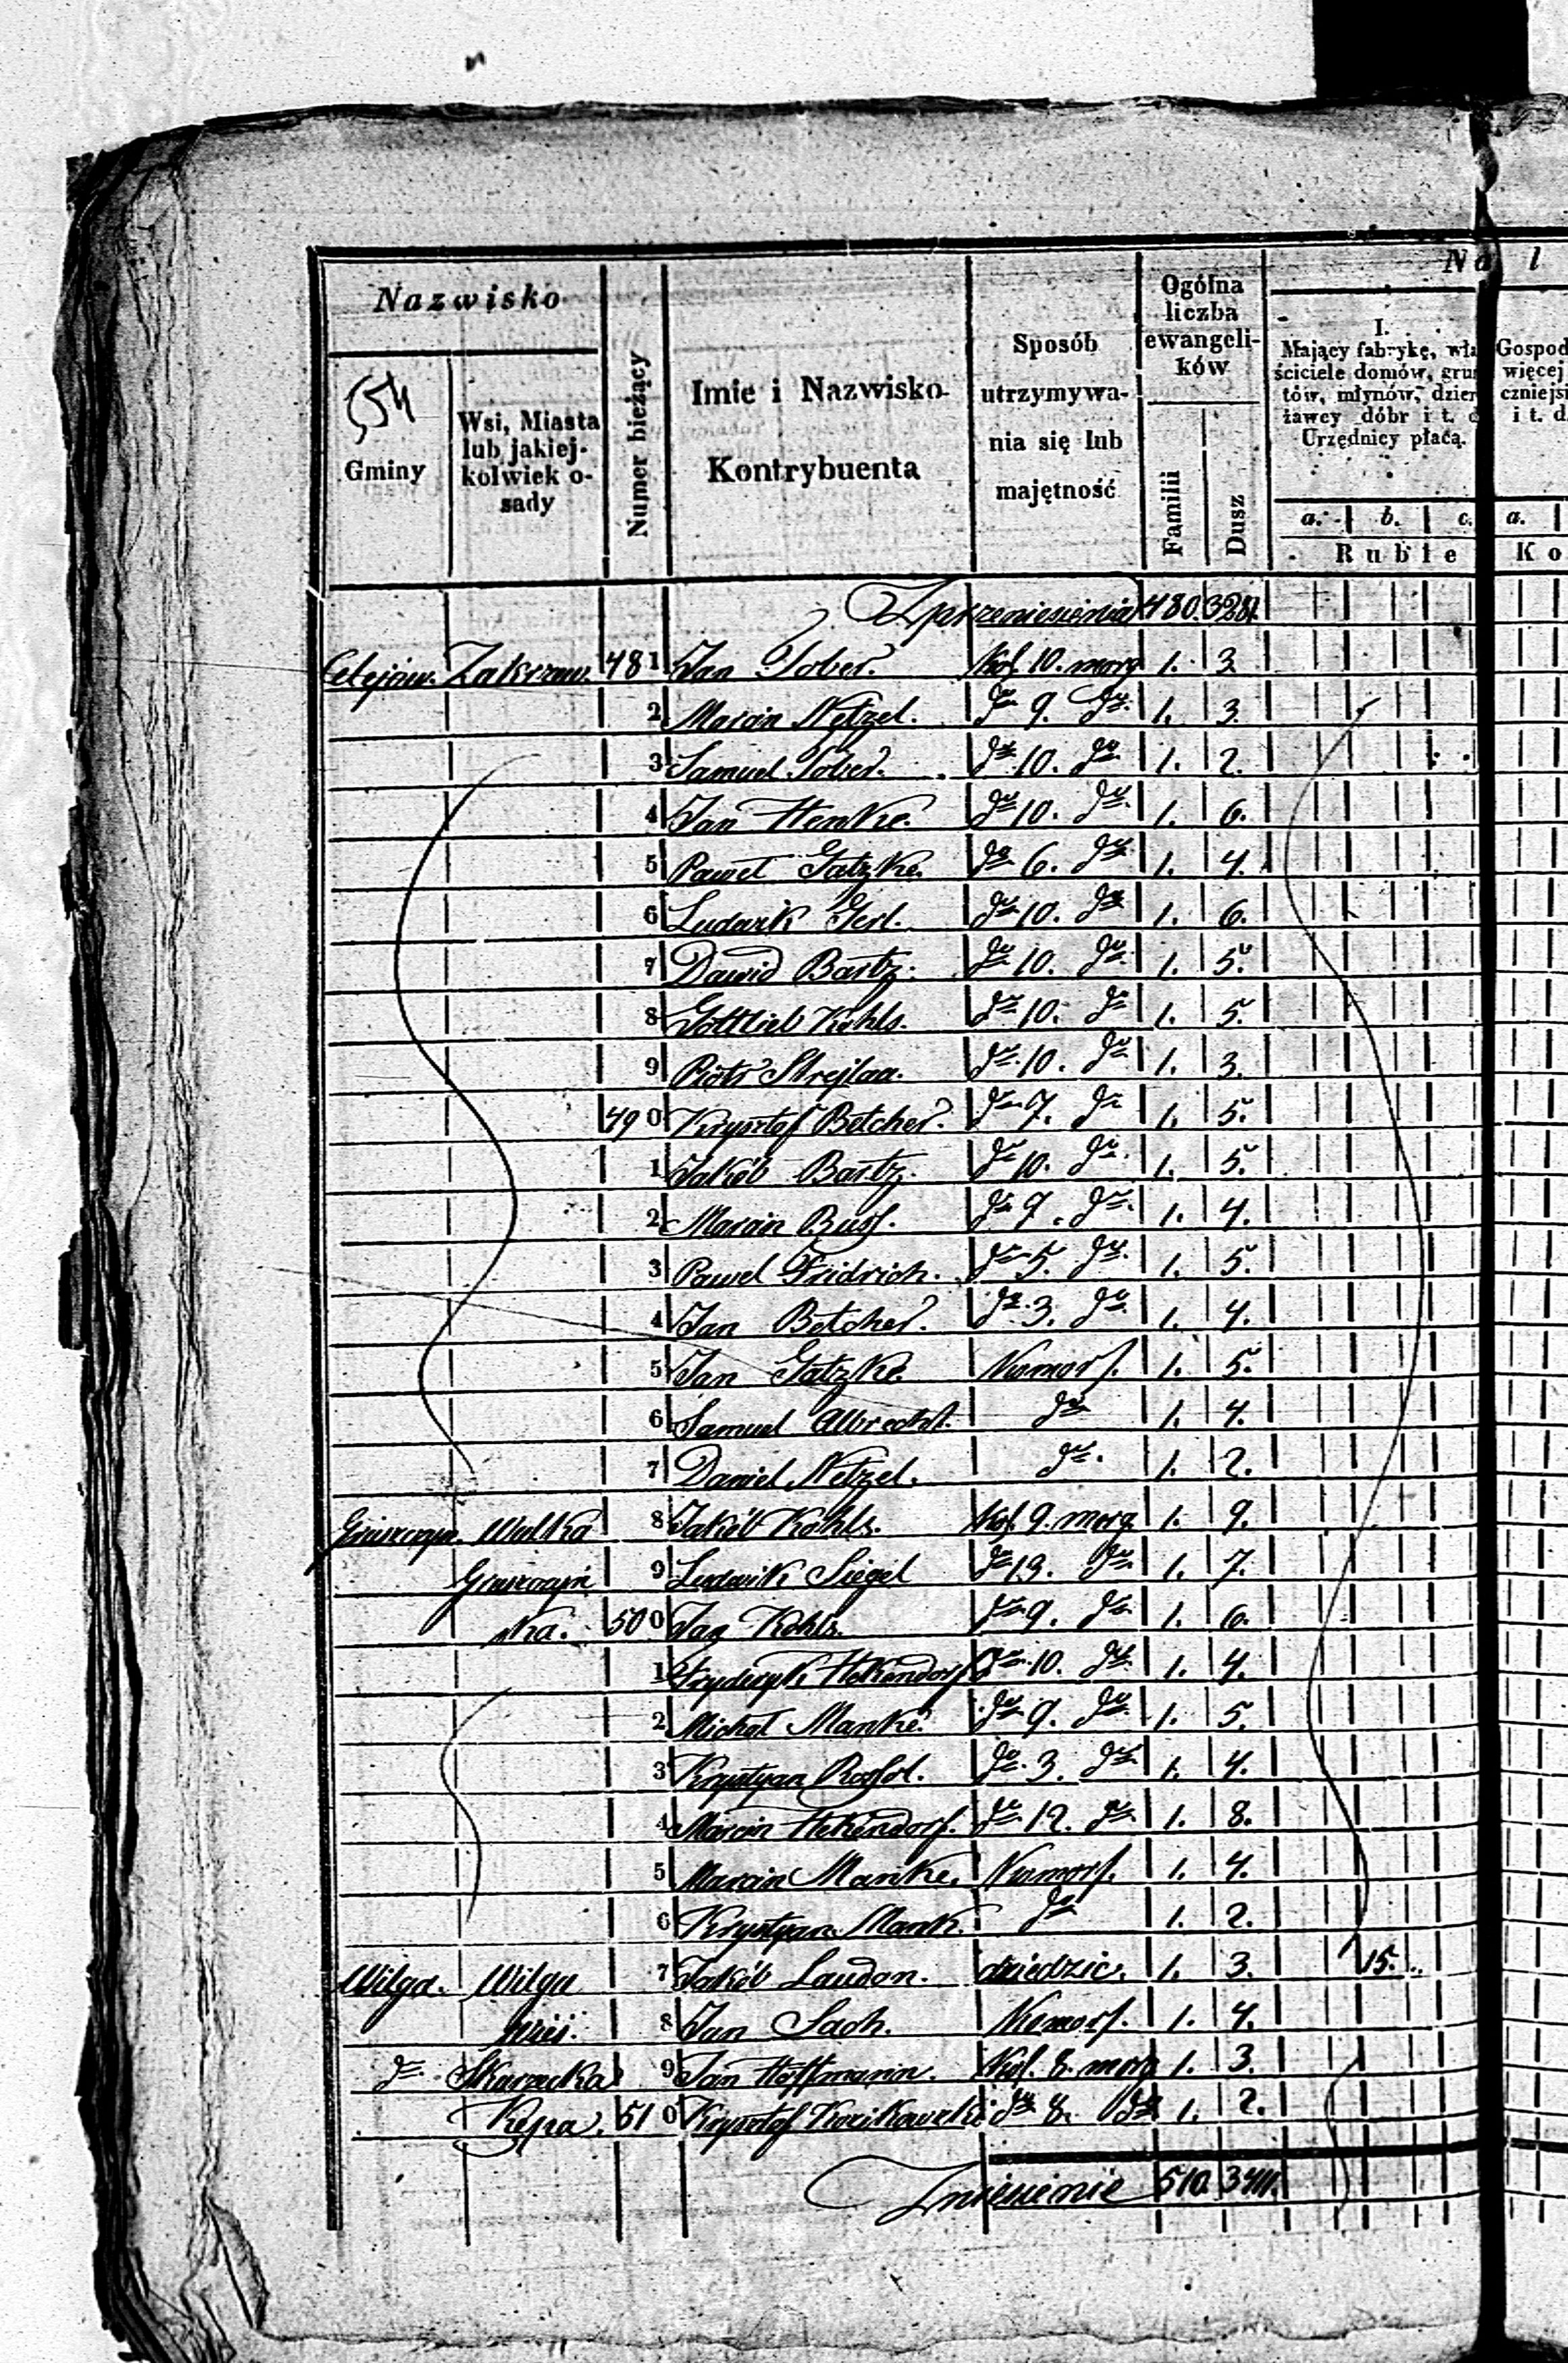 Nazwisko
Gminy
Wsi, Miasta
lub jakiej-
kolwiek o-
sady
Numer bieżący
Imie i Nazwisko
Kontrybuenta
Sposób
utrzymywa-
nia się lub
majętność
Ogólna
liczba
ewangeli-
ków
Familii
Dusz
Na l
I.
Mający fabrykę, wła
ściciele domów, grun
tów, młynów, dzier
żawcy dóbr i t. d.
Urzędnicy płacą.
Gospod
więcej
czniejsi
i t. d
a. b. c. a.
Ruble Ko
Z przeniesienia 480.
Zakrzew. 481 Jan Tober. Kol. 10. morg 1. 3
2 Marcin Netzel. do 9. do 1. 3.
3 Samuel Tober. do 10. do 1. 2.
4 Jan Henke. do 10. do 1. 6.
5 Paweł Gatzke. do 6. do 1. 4.
6 Ludwik do 10. do 1. 6.
7 Dawid Bartz. do 10. do 1. 5.
8 Gottlieb Kohls. do 10. do 1. 5.
9 Piotr do 10. do 1. 3.
490 Krysztof Betcher. do 7. do 1. 5.
1 Jakób Bartz. do 10. do 1. 5.
2 Marcin Buss. do do 1. 4.
3 Paweł Fridrich. do 5. do 1. 5.
4 Jan Betcher. do 3. do 1. 4.
5 Jan Gatzke. Komor. 1. 5.
6 Samuel Albrecht. do 1. 4.
7 Daniel Netzel. do 1. 2.
Wulka 8 Jakób Kohls. Kol. 9. morg 1. 9.
9 Ludwik Siegel do 13. do 1. 7.
ka. 500 Jan Kohls. do 9. do 1. 6.
1 Fryderyk Hekendorf do 10. do 1. 4.
2 Michał Manke. do 9. do 1. 5.
3 Krystyan Rossol. do 3. do 1. 4.
4 Marcin Hekendorf. do 12. do 1. 8.
5 Marcin Manke. Komor. 1. 4.
6 Krystyan Mank. do 1. 2.
Wilga. Wilga 7 Jakób Laudon. dziedzic. 1. 3. 15.
wieś. 8 Jan Sach. Komor. 1. 4.
do 9 Jan Hoffmann. Kol. 8. morg 1. 3.
Kępa. 510 Krysztof do 8. do 1. 2.
Zniesienie 510.